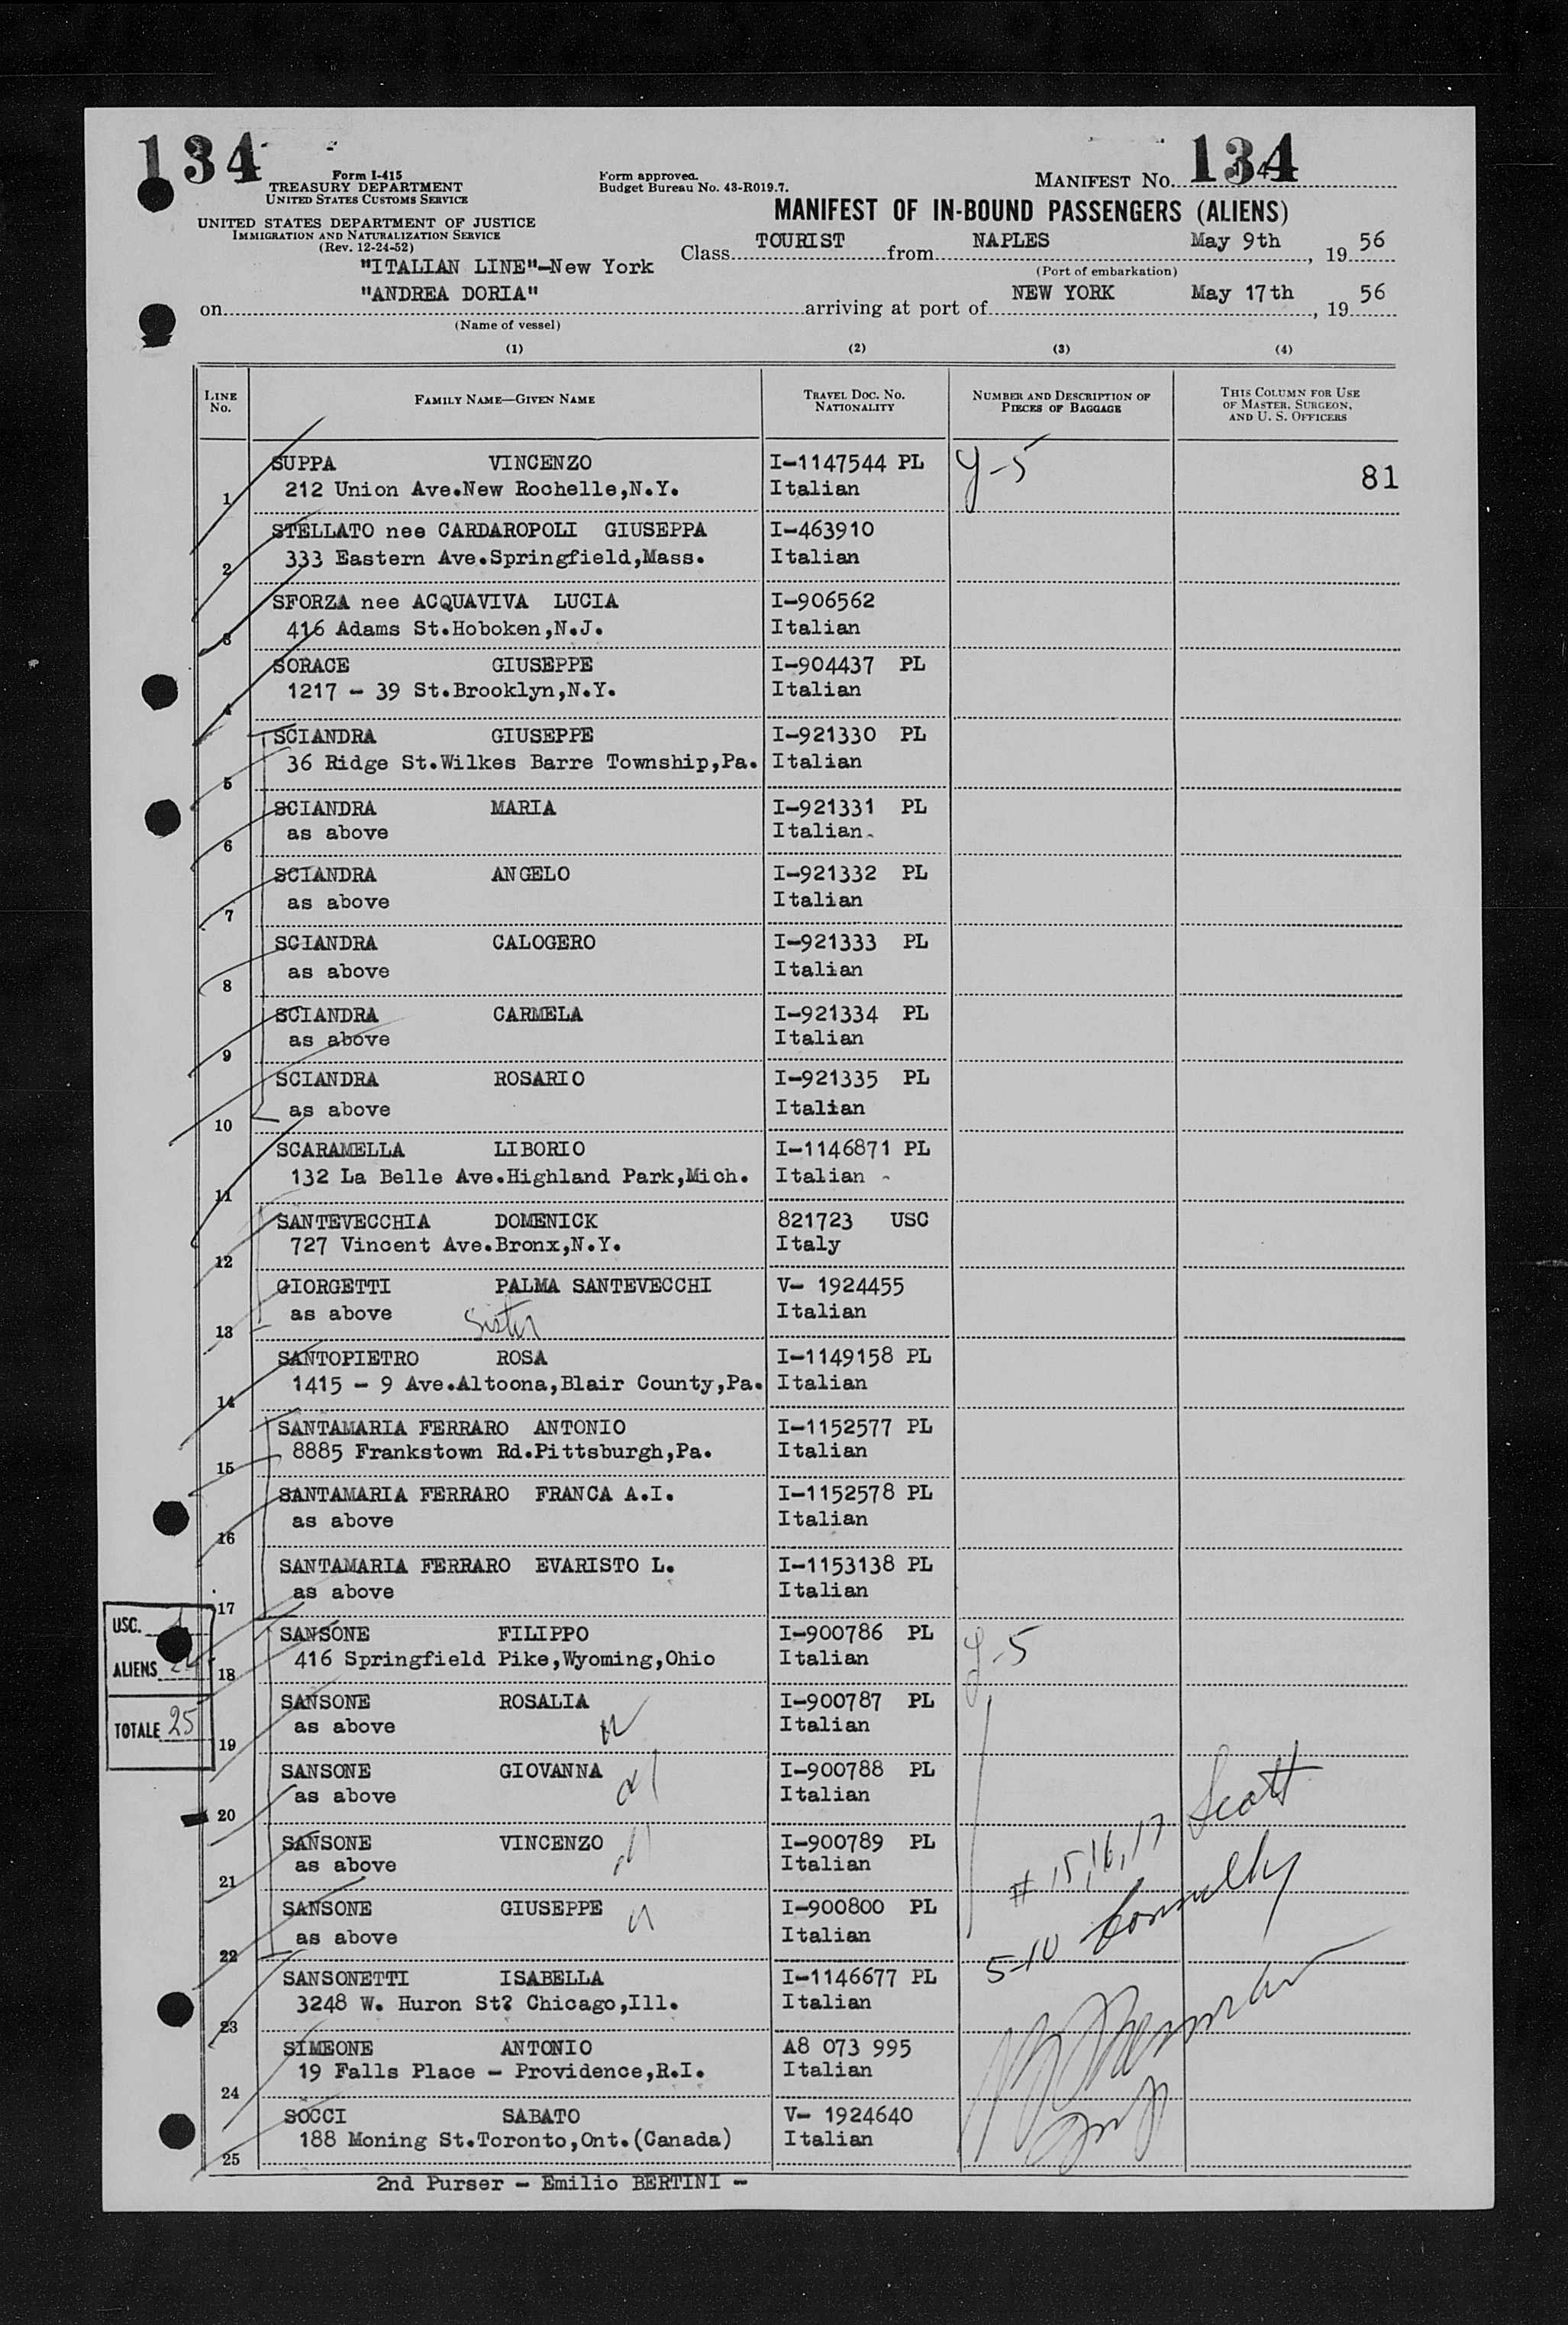 134
Form I-415
TREASURY DEPARTMENT
UNITED STATES CUSTOMS SERVICE
UNITED STATES DEPARTMENT OF JUSTICE
IMMIGRATION AND NATURALIZATION SERVICE
(Rev. 12-24-52)
Form approved.
Budget Bureau No. 43-R019.7.
MANIFEST NO. 134
MANIFEST OF IN-BOUND PASSENGERS (ALIENS)
Class TOURIST from NAPLES May 9th, 19 56
(Port of embarkation)
"ITALIAN LINE"-New York
on "ANDREA DORIA" arriving at port of NEW YORK May 17th, 19 56
(Name of vessel)
(1) (2) (3) (4)
LINE NO. FAMILY NAME—GIVEN NAME TRAVEL DOC. NO. NATIONALITY NUMBER AND DESCRIPTION OF PIECES OF BAGGAGE THIS COLUMN FOR USE OF MASTER, SURGEON, AND U. S. OFFICERS
SUPPA VINCENZO I-1147544 PL 81
1 212 Union Ave.New Rochelle,N.Y. Italian
STELLATO nee CARDAROPOLI GIUSEPPA I-463910
2 333 Eastern Ave.Springfield,Mass. Italian
SFORZA nee ACQUAVIVA LUCIA I-906562
3 416 Adams St.Hoboken,N.J. Italian
SORACE GIUSEPPE I-904437 PL
4 1217 - 39 St.Brooklyn,N.Y. Italian
SCIANDRA GIUSEPPE I-921330 PL
5 36 Ridge St.Wilkes Barre Township,Pa. Italian
SCIANDRA MARIA I-921331 PL
6 as above Italian
SCIANDRA ANGELO I-921332 PL
7 as above Italian
SCIANDRA CALOGERO I-921333 PL
8 as above Italian
SCIANDRA CARMELA I-921334 PL
9 as above Italian
SCIANDRA ROSARIO I-921335 PL
10 as above Italian
SCARAMELLA LIBORIO I-1146871 PL
11 132 La Belle Ave.Highland Park,Mich. Italian
SANTEVECCHIA DOMENICK 821723 USC
12 727 Vincent Ave.Bronx,N.Y. Italy
GIORGETTI PALMA SANTEVECCHI V- 1924455
13 as above Sister Italian
SANTOPIETRO ROSA I-1149158 PL
14 1415 - 9 Ave.Altoona,Blair County,Pa. Italian
SANTAMARIA FERRARO ANTONIO I-1152577 PL
15 8885 Frankstown Rd.Pittsburgh,Pa. Italian
SANTAMARIA FERRARO FRANCA A.I. I-1152578 PL
16 as above Italian
SANTAMARIA FERRARO EVARISTO L. I-1153138 PL
17 as above Italian
USC.
ALIENS
TOTALE 25
SANSONE FILIPPO I-900786 PL
18 416 Springfield Pike,Wyoming,Ohio Italian
SANSONE ROSALIA I-900787 PL
19 as above Italian
SANSONE GIOVANNA I-900788 PL
20 as above Italian
Scott
# 15,16,17
SANSONE VINCENZO I-900789 PL
21 as above Italian
SANSONE GIUSEPPE I-900800 PL
22 as above Italian
5-10 Connelly
SANSONETTI ISABELLA I-1146677 PL
23 3248 W. Huron St? Chicago,Ill. Italian
SIMEONE ANTONIO A8 073 995
24 19 Falls Place - Providence,R.I. Italian
SOCCI SABATO V- 1924640
25 188 Moning St.Toronto,Ont.(Canada) Italian
2nd Purser - Emilio BERTINI -